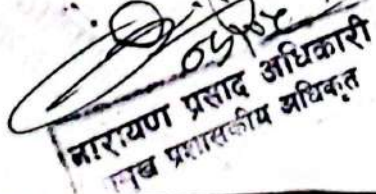 नारायण प्रसाद अधिकारी
प्रशासकीय अधिकृत